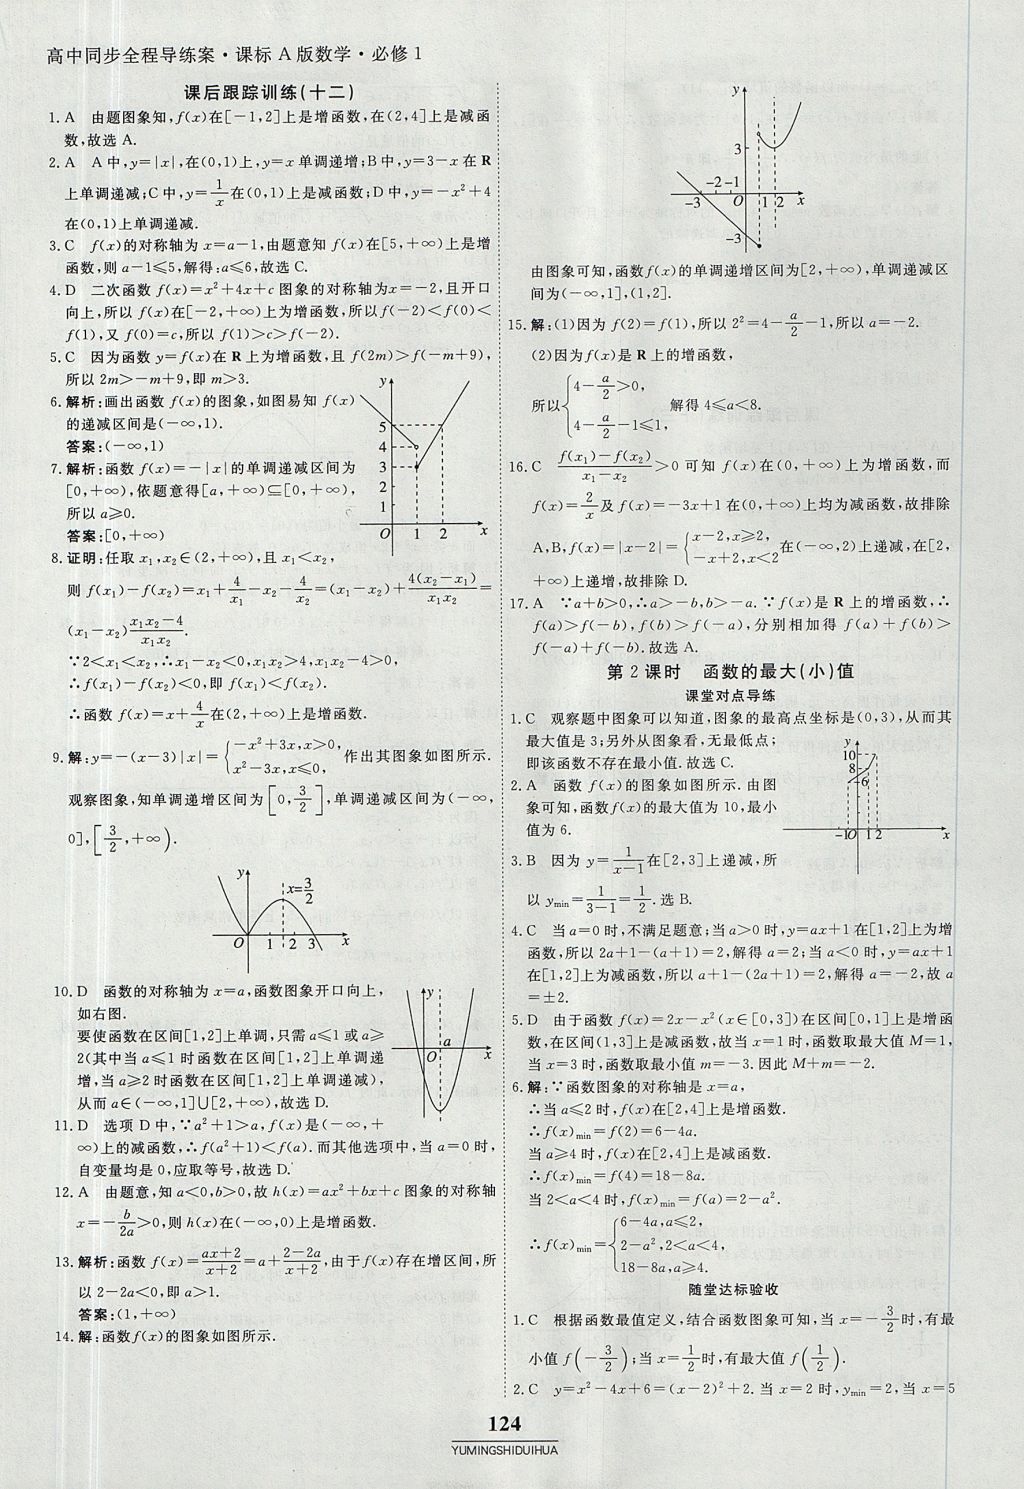 高中同步全程导练案·课标A版数学·必修1
课后跟踪训练(十二)
1. A 由题图象知,f(x)在[-1,2]上是增函数,在(2,4]上是减函
数,故选A.
2. A A中,y=|x|,在(0,1)上,y=x单调递增;B中,y=3-x在R
上单调递减;C中,y=1/x在(0,1)上是减函数;D中,y=-x²+4
在(0,1)上单调递减.
3. C f(x)的对称轴为x=a-1,由题意知f(x)在[5,+∞)上是增
函数,则a-1≤5,解得:a≤6,故选C.
4. D 二次函数f(x)=x²+4x+c图象的对称轴为x=-2,且开口
向上,所以f(x)在[-2,+∞)上为增函数,所以f(-2)<f(0)<
f(1),又f(0)=c,所以f(1)>c>f(-2).
5. C 因为函数y=f(x)在R上为增函数,且f(2m)>f(-m+9),
所以2m>-m+9,即m>3.
6. 解析:画出函数f(x)的图象,如图易知f(x)
的递减区间是(-∞,1).
答案:(-∞,1)
7. 解析:函数f(x)=-|x|的单调递减区间为
[0,+∞),依题意得[a,+∞)⊆[0,+∞),
所以a≥0.
答案:[0,+∞)
y
5
4
3
2
1
O 1 2 x
8. 证明:任取x₁,x₂∈(2,+∞),且x₁<x₂,
则f(x₁)-f(x₂)=x₁+4/x₁-x₂-4/x₂=(x₁-x₂)+4(x₂-x₁)/x₁x₂=
(x₁-x₂)(x₁x₂-4)/x₁x₂.
∵2<x₁<x₂,∴x₁-x₂<0,x₁x₂>4,x₁x₂-4>0,
∴f(x₁)-f(x₂)<0,即f(x₁)<f(x₂).
∴函数f(x)=x+4/x在(2,+∞)上是增函数.
9. 解:y=-(x-3)|x|={-x²+3x,x>0, x²-3x,x≤0, 作出其图象如图所示.
观察图象,知单调递增区间为[0,3/2],单调递减区间为(-∞,
0],[3/2,+∞).
y x=3/2
O 1 2 3 x
10. D 函数的对称轴为x=a,函数图象开口向上,
如右图.
要使函数在区间[1,2]上单调,只需a≤1或a≥
2(其中当a≤1时函数在区间[1,2]上单调递
增,当a≥2时函数在区间[1,2]上单调递减),
从而a∈(-∞,1]∪[2,+∞),故选D.
y
O a x
11. D 选项D中,∵a²+1>a,f(x)是(-∞,+
∞)上的减函数,∴f(a²+1)<f(a).而其他选项中,当a=0时,
自变量均是0,应取等号,故选D.
12. A 由题意,知a<0,b>0,故h(x)=ax²+bx+c图象的对称轴
x=-b/2a>0,则h(x)在(-∞,0)上是增函数.
13. 解析:函数f(x)=(ax+2)/(x+2)=a+(2-2a)/(x+2),由于f(x)存在增区间,所
以2-2a<0,即a>1.
答案:(1,+∞)
14. 解:函数f(x)的图象如图所示.
y
3
-2 -1
-3 O 1 2 x
-3
由图象可知,函数f(x)的单调递增区间为[2,+∞),单调递减区
间为(-∞,1],(1,2].
15. 解:(1)因为f(2)=f(1),所以2²=4-a/2-1,所以a=-2.
(2)因为f(x)是R上的增函数,
所以{4-a/2>0, 4-a/2-1≤1, 解得4≤a<8.
16. C (f(x₁)-f(x₂))/(x₁-x₂)>0可知f(x)在(0,+∞)上为增函数,而
f(x)=2/x及f(x)=-3x+1在(0,+∞)上均为减函数,故排除
A,B,f(x)=|x-2|={x-2,x≥2, -x+2,x<2在(-∞,2)上递减,在[2,
+∞)上递增,故排除D.
17. A ∵a+b>0,∴a>-b,b>-a.∵f(x)是R上的增函数,∴
f(a)>f(-b),f(b)>f(-a),分别相加得f(a)+f(b)>
f(-a)+f(-b).故选A.
第2课时 函数的最大(小)值
课堂对点导练
1. C 观察题中图象可以知道,图象的最高点坐标是(0,3),从而其
最大值是3;另外从图象看,无最低点;
即该函数不存在最小值.故选C.
2. A 函数f(x)的图象如图所示.由图
象可知,函数f(x)的最大值为10,最小
值为6.
y
10
8
6
-1 O 1 2 x
3. B 因为y=1/(x-1)在[2,3]上递减,所
以ymin=1/(3-1)=1/2.选B.
4. C 当a=0时,不满足题意;当a>0时,y=ax+1在[1,2]上为增
函数,所以2a+1-(a+1)=2,解得a=2;当a<0时,y=ax+1
在[1,2]上为减函数,所以a+1-(2a+1)=2,解得a=-2,故a
=±2.
5. D 由于函数f(x)=2x-x²(x∈[0,3])在区间[0,1]上是增函
数,在区间(1,3]上是减函数,故当x=1时,函数取最大值M=1,
当x=3时,函数取最小值m=-3.因此M+m=-2.
6. 解:∵函数图象的对称轴是x=a,
∴当a≤2时,f(x)在[2,4]上是增函数.
∴f(x)min=f(2)=6-4a.
当a≥4时,f(x)在[2,4]上是减函数.
∴f(x)min=f(4)=18-8a.
当2<a<4时,f(x)min=f(a)=2-a².
∴f(x)min={6-4a,a≤2, 2-a²,2<a<4, 18-8a,a≥4.
随堂达标验收
1. C 根据函数最值定义,结合函数图象可知,当x=-3/2时,有最
小值f(-3/2);当x=1/2时,有最大值f(1/2).
2. C y=x²-4x+6=(x-2)²+2.当x=2时,ymin=2,当x=5
124
YUMINGSHIDUIHUA